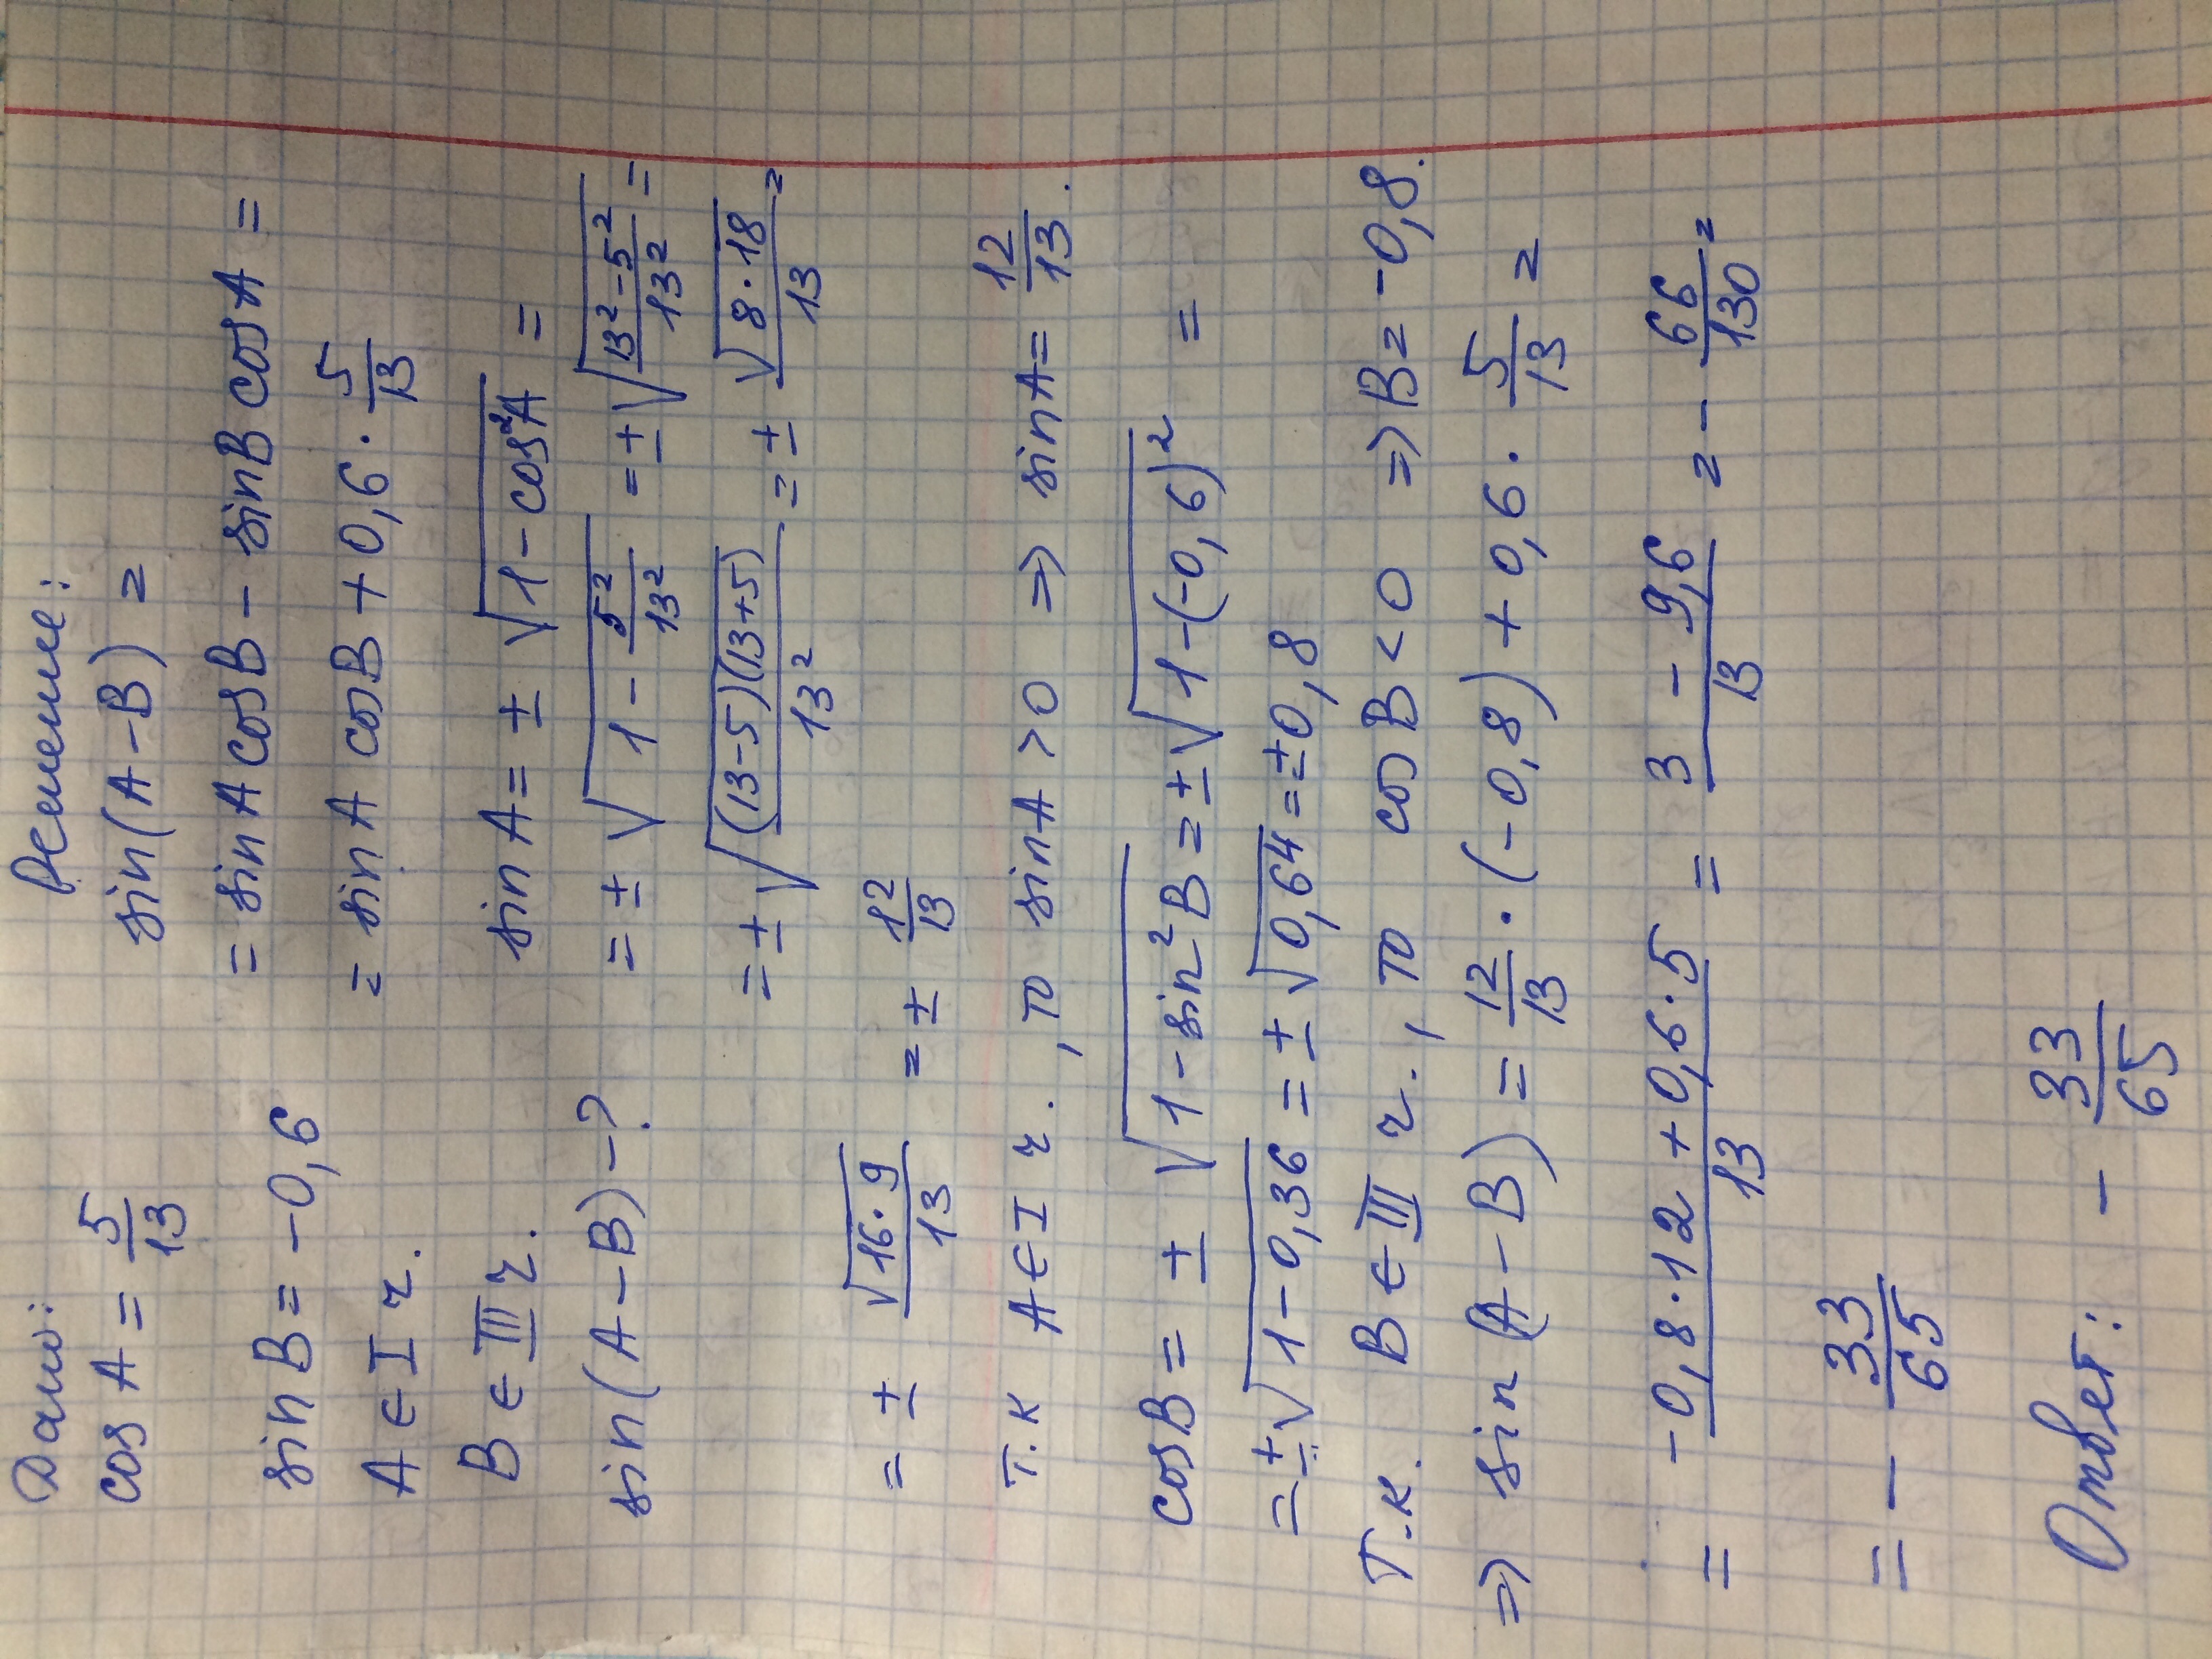 Дано:
cos A = 5/13
sin B = -0,6
A ∈ I ч.
B ∈ III ч.
sin(A-B)-?
Решение:
sin(A-B) =
= sinA cosB - sinB cosA =
= sinA cosB + 0,6 · 5/13
sin A = ± √(1 - cos²A) =
= ± √(1 - 5²/13²) = ± √((13² - 5²)/13²) =
= ± √((13-5)(13+5)/13²) = ± √(8·18)/13 =
= ± √(16·9)/13 = ± 12/13
Т.к A ∈ I ч., то sinA > 0 ⇒ sinA = 12/13.
cosB = ± √(1 - sin²B) = ± √(1-(-0,6)²) =
= ± √(1-0,36) = ± √0,64 = ±0,8
Т.к. B ∈ III ч., то cos B < 0 ⇒ B = -0,8.
⇒ sin(A-B) = 12/13 · (-0,8) + 0,6 · 5/13 =
= (-0,8·12 + 0,6·5)/13 = (3 - 9,6)/13 = - 66/130 =
= - 33/65
Ответ: - 33/65